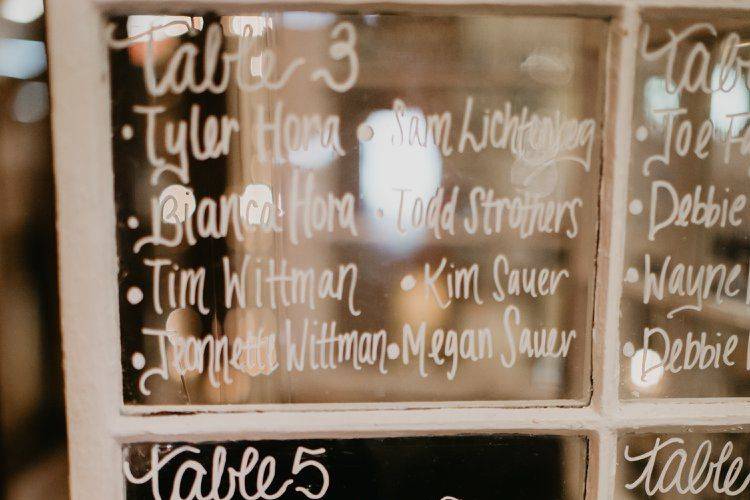 table 3
• Tyler Hora • Sam Lichtenberg
• Bianca Hora • Todd Strothers
• Tim Wittman • Kim Sauer
• Jeannette Wittman • Megan Sauer
• Joe
• Debbie
• Wayne
• Debbie
table 5
table